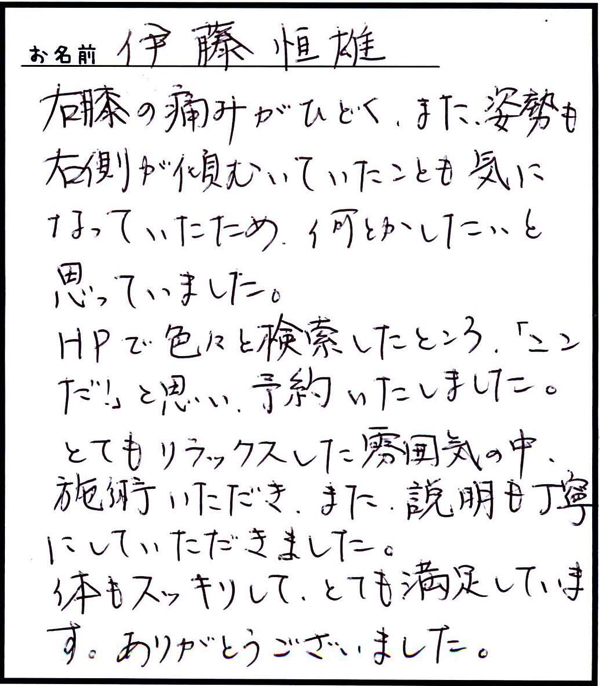 お名前 伊藤 恒雄
右膝の痛みがひどく、また、姿勢も
右側が傾むいていたことも気に
なっていたため、何とかしたいと
思っていました。
HPで色々と検索したところ、「ここ
だ!」と思い、予約いたしました。
とてもリラックスした雰囲気の中、
施術いただき、また、説明も丁寧
にしていただきました。
体もスッキリして、とても満足していま
す。ありがとうございました。